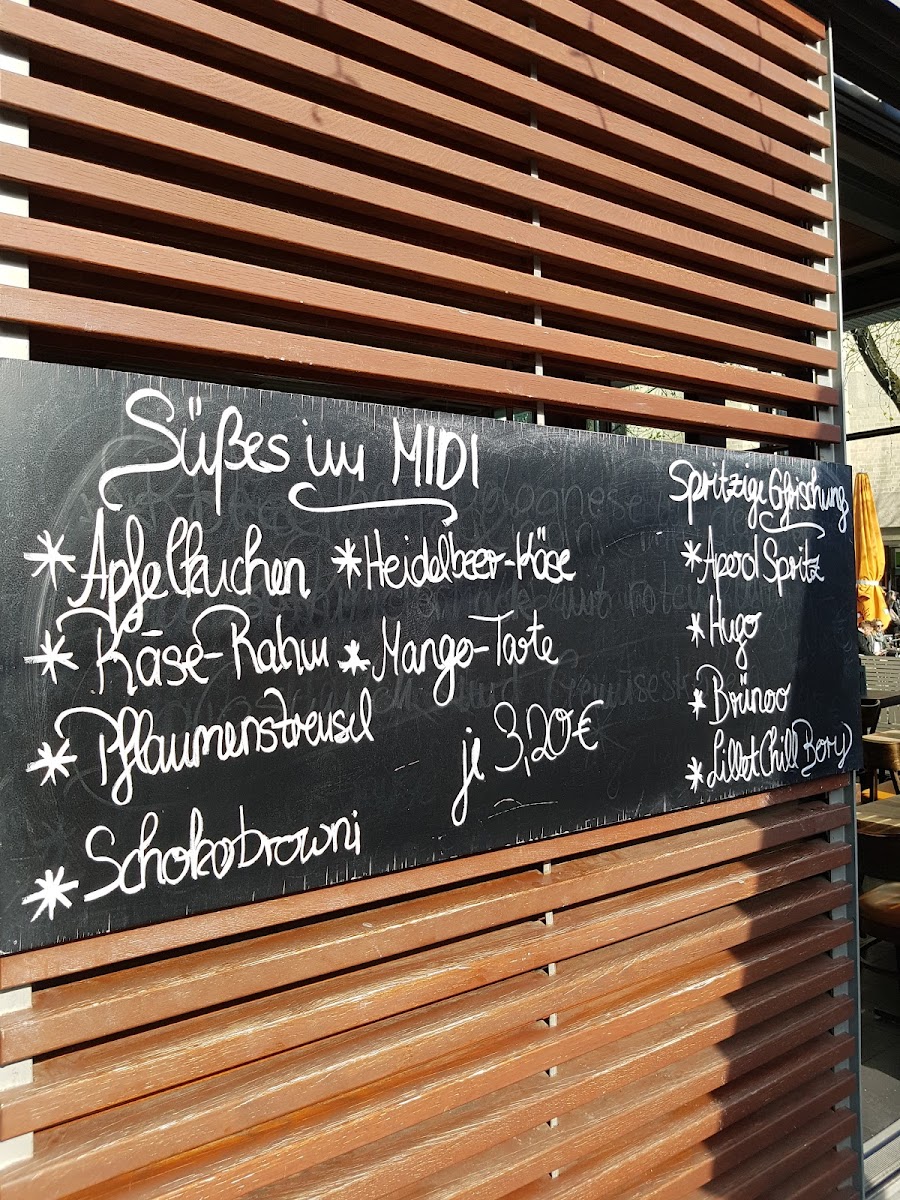 Süßes im MIDI
* Apfelkuchen
* Käse-Rahm
* Pflaumenstreusel
* Schokobrowni
* Heidelbeer-Käse
* Mango-Tarte
je 3,20€
Spritzige Erfrischung
* Aperol Spritz
* Hugo
* Lillet Chill Berry